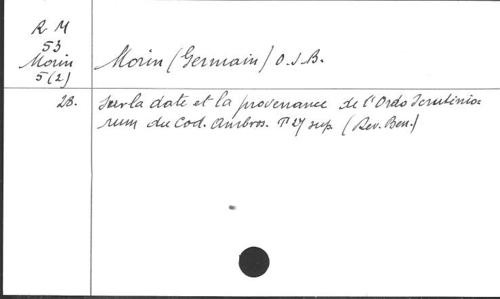 R M
53
Morin
5(2)
Morin (Germain) O.S.B.
28. Sur la date et la provenance de l'Ordo Scrutinio-
rum du Cod. Ambros. T 27 sup. (Rev. Ben.)